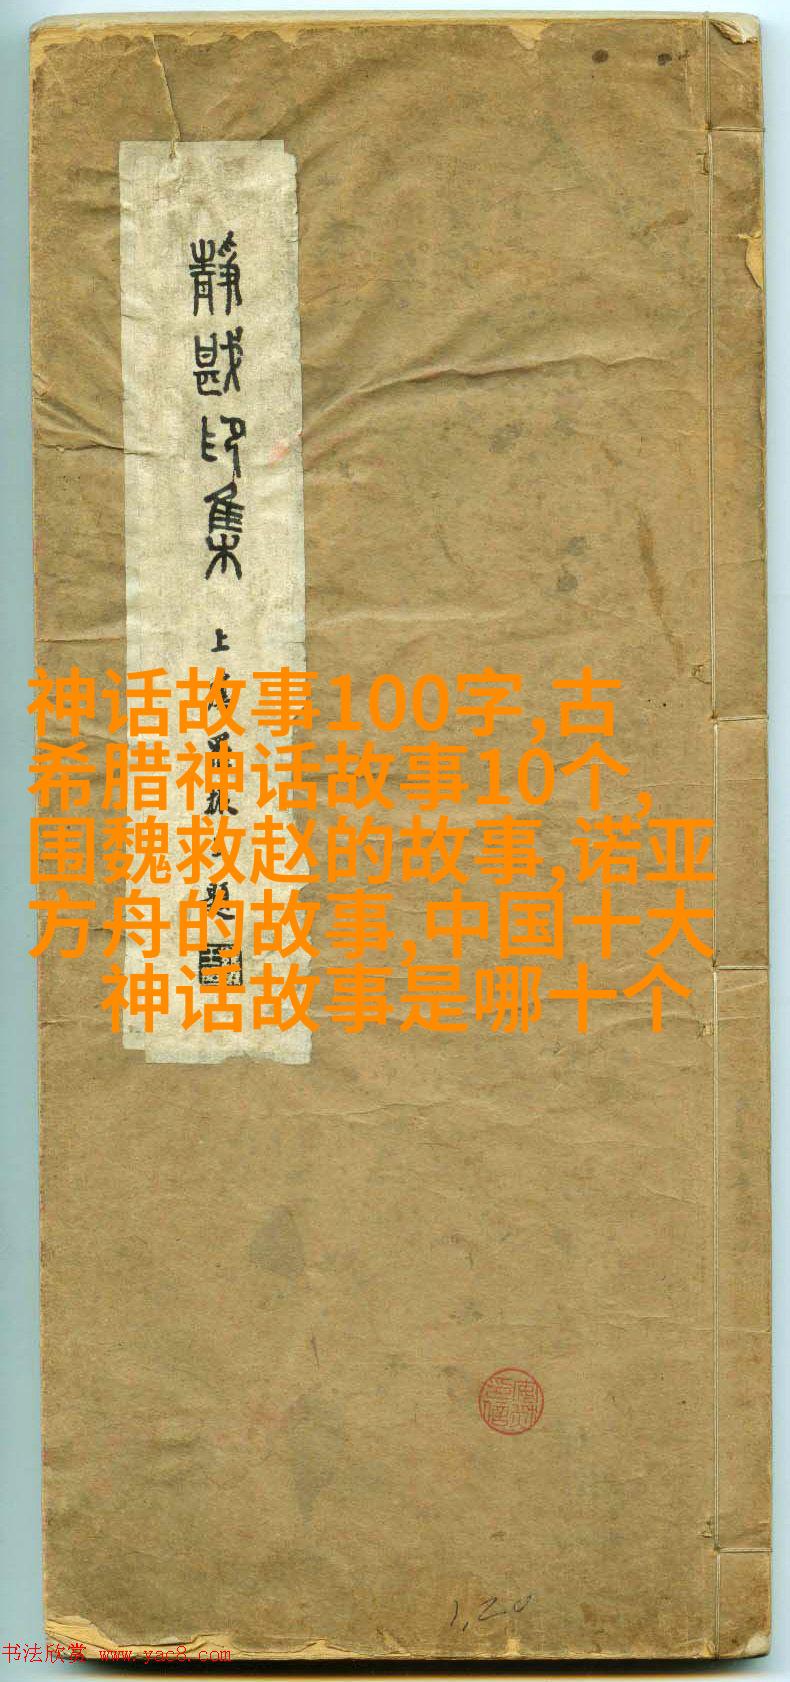 靜戡印集
上
振
題
神话故事100字,古
希腊神话故事10个,
围魏救赵的故事,诺亚
方舟的故事,中国十大
神话故事是哪十个
1,20
书法欣赏 www.yac8.com